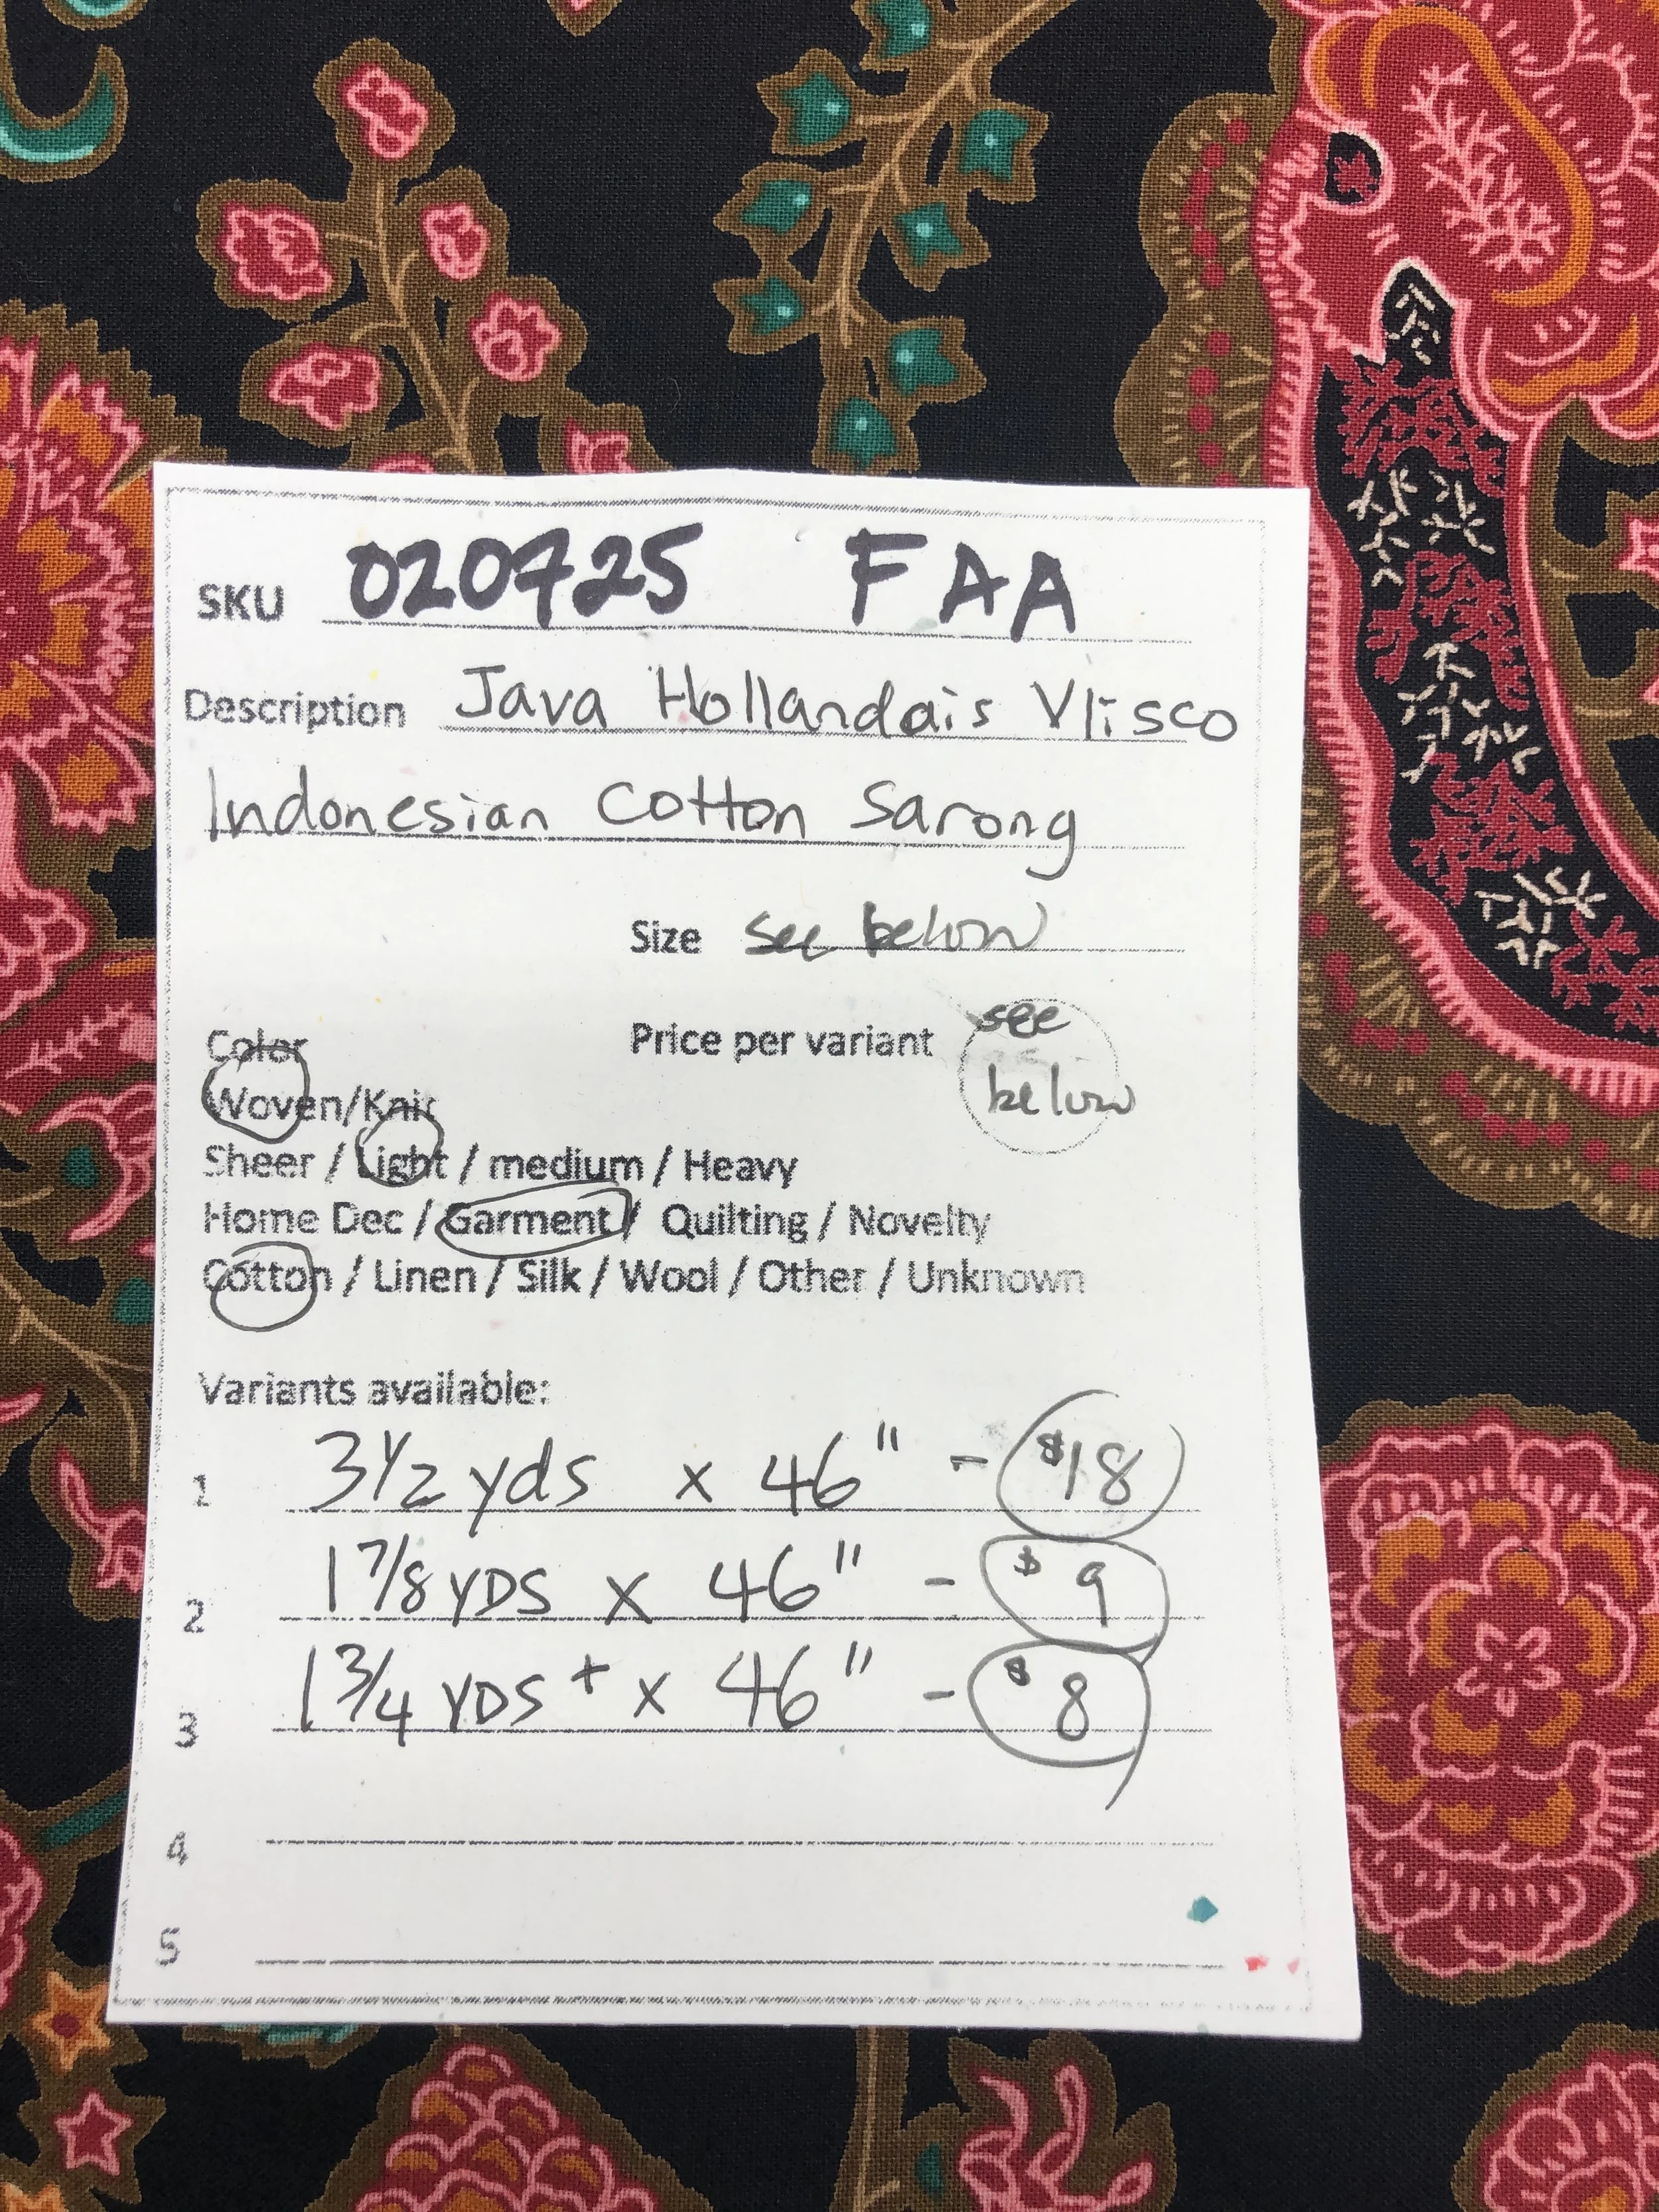 SKU 020725 FAA
Description Java Hollandais Vlisco
Indonesian Cotton Sarong
Size see below
Color
Price per variant see
below
Woven/Knit
Sheer / Light / medium / Heavy
Home Dec / Garment / Quilting / Novelty
Cotton / Linen / Silk / Wool / Other / Unknown
Variants available:
1 3 1/2 yds x 46" - $18
2 1 7/8 YDS x 46" - $9
3 1 3/4 YDS + x 46" - $8
4
5